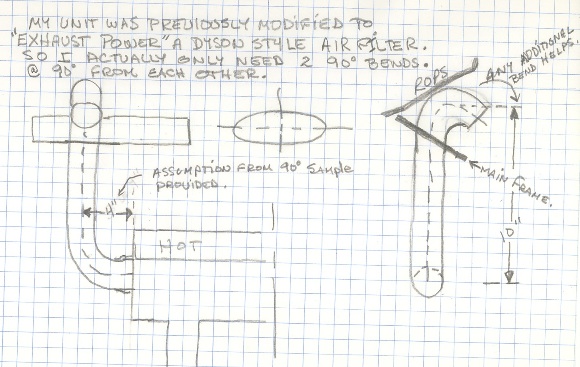 MY UNIT WAS PREVIOUSLY MODIFIED TO
"EXHAUST POWER" A DYSON STYLE AIR FILTER.
SO I ACTUALLY ONLY NEED 2 90° BENDS.
@ 90° FROM EACH OTHER.
ROPS
ANY ADDITIONEL
BEND HELPS.
ASSUMPTION FROM 90° SAMPLE
PROVIDED.
MAIN FRAME.
4"
HOT
10"